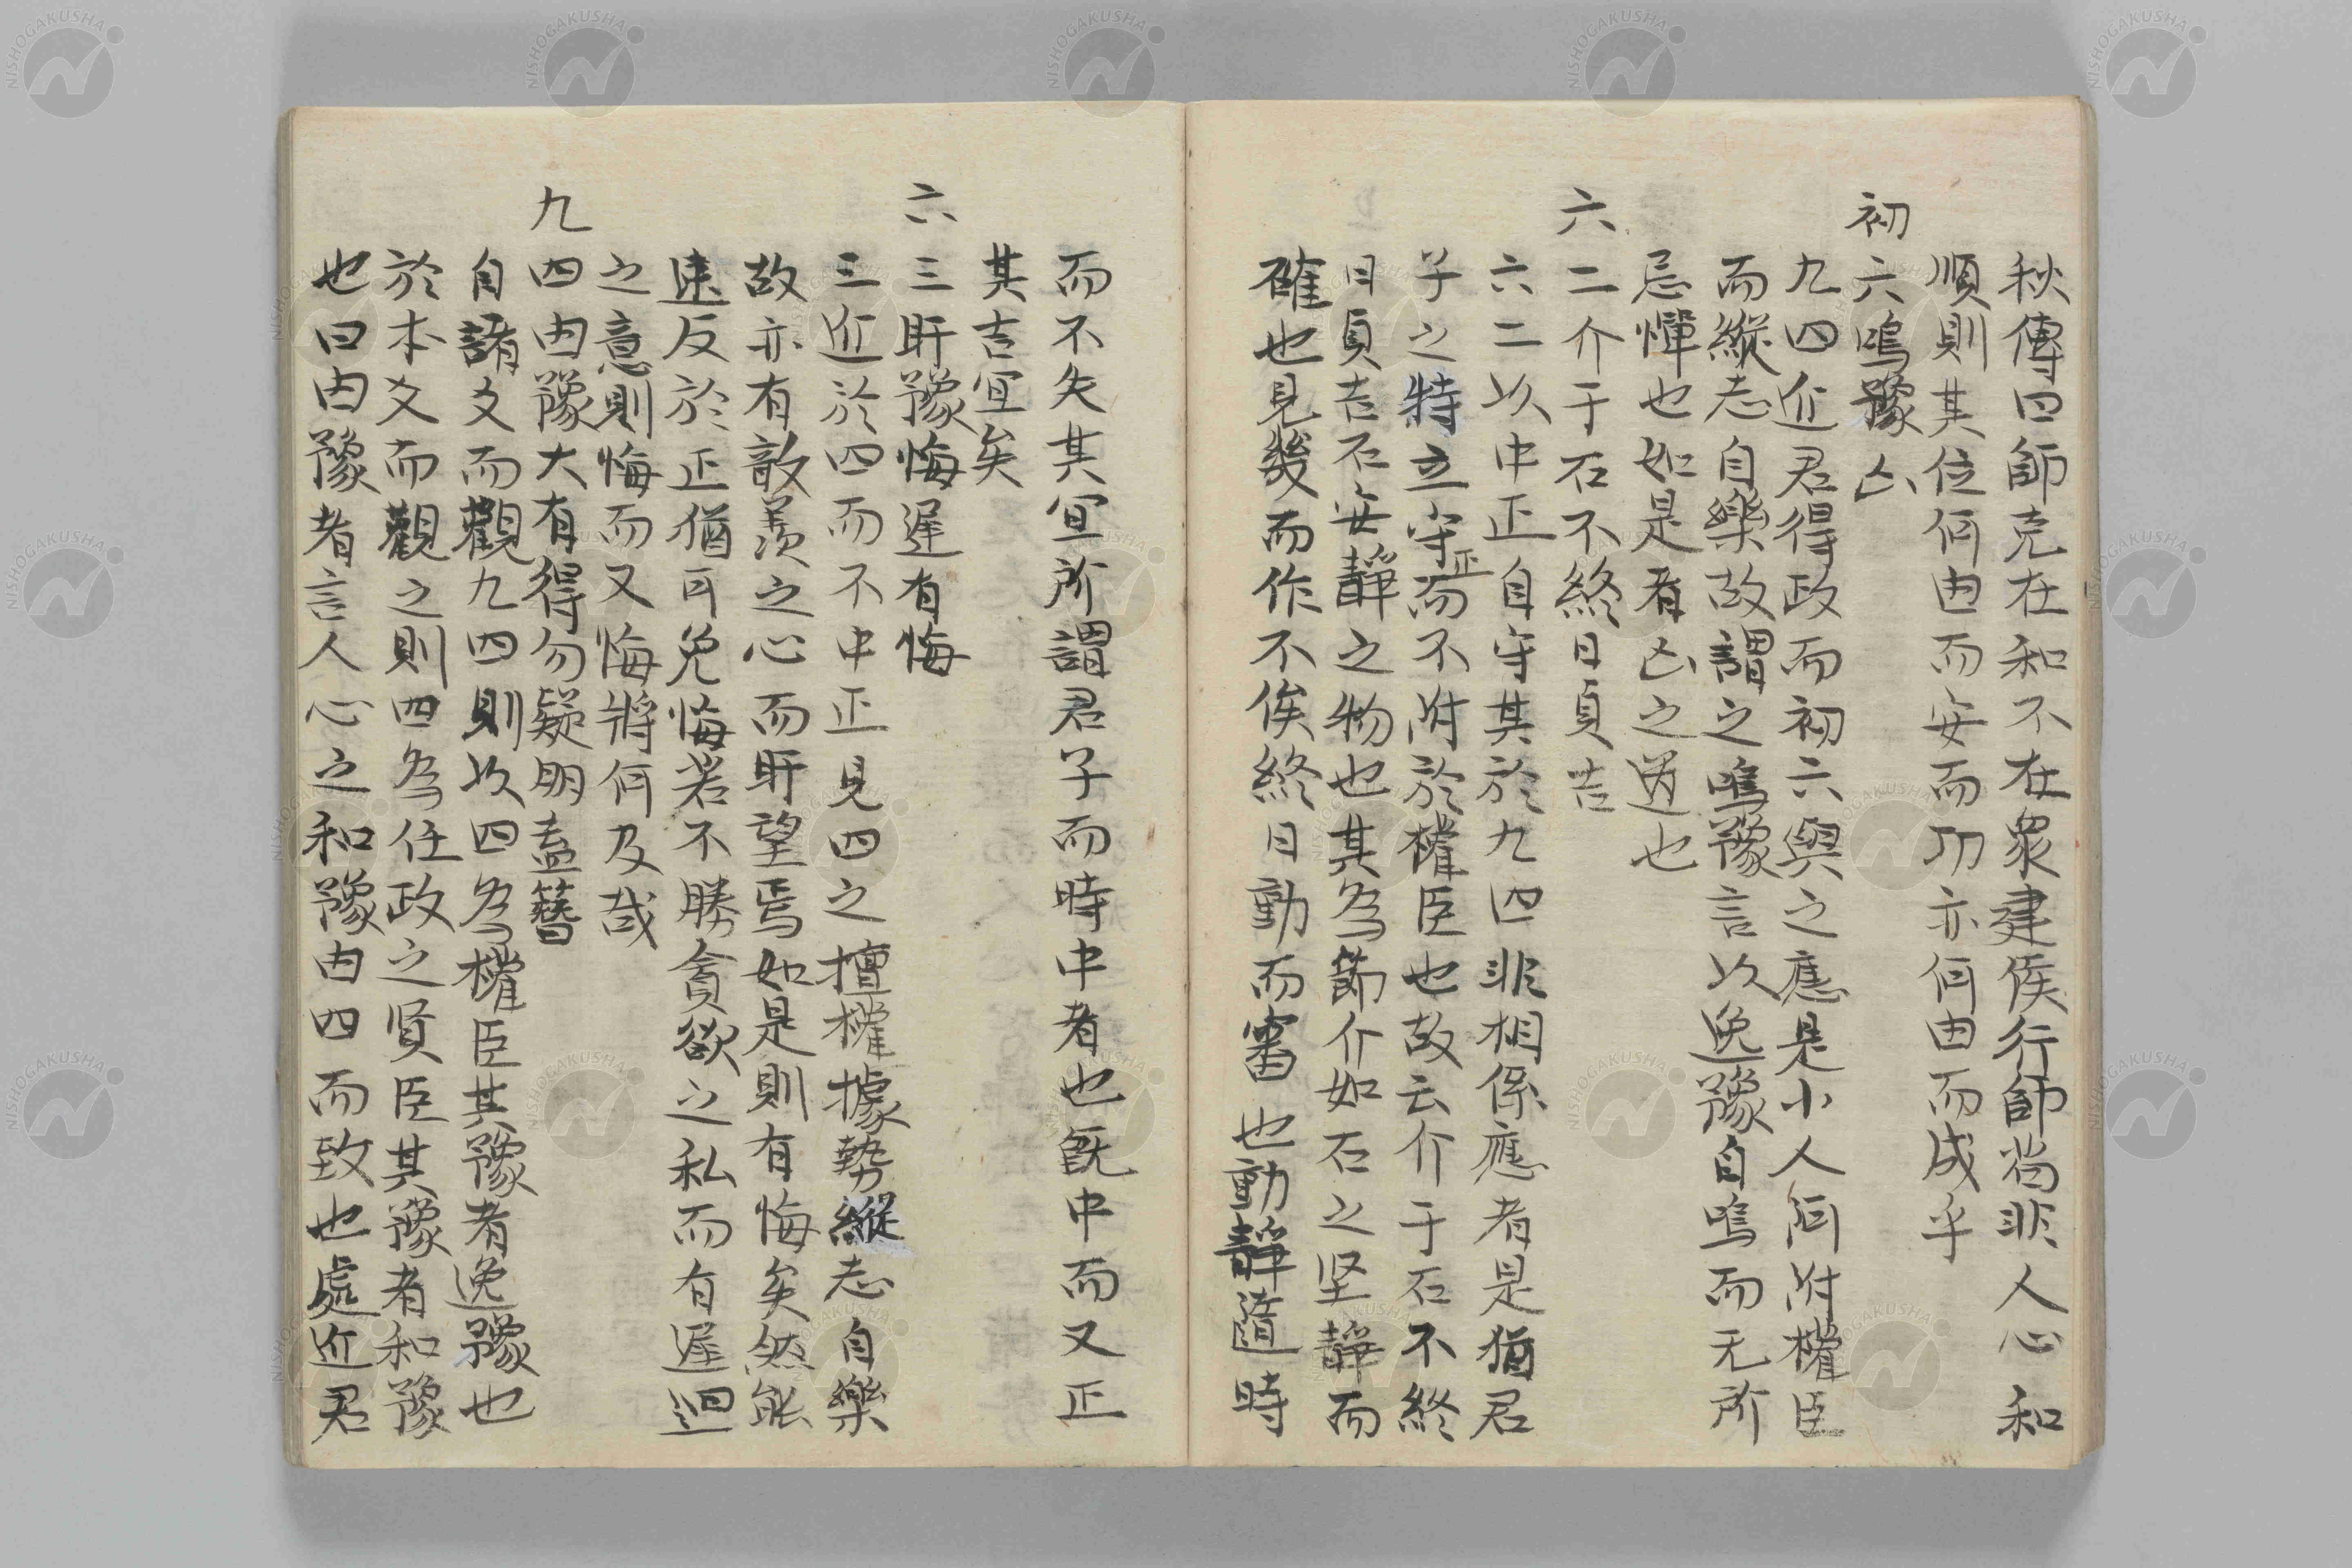 秋傳曰師克在和不在衆建侯行師尚非人心和
順則其位何由而安而功亦何由而成乎
初六鳴豫凶
九四近君得政而初六與之應是小人阿附權臣
而縱志自樂故謂之鳴豫言以逸豫自鳴而无所
忌憚也如是者凶之道也
六二介于石不終日貞吉
六二以中正自守其於九四非相係應者是猶君
子之特立守正而不附於權臣也故云介于石不終
日貞吉石安靜之物也其為節介如石之坚靜而
確也見幾而作不俟終日動而審也動靜隨時
而不失其宜所謂君子而時中者也既中而又正
其吉宜矣
六三盱豫悔遲有悔
三近於四而不中正見四之擅權據勢縱志自樂
故亦有歆羨之心而盱望焉如是則有悔矣然能
速反於正猶可免悔若不勝貪欲之私而有遲迴
之意則悔而又悔將何及哉
九四由豫大有得勿疑朋盍簪
自諸爻而觀九四則以四為權臣其豫者逸豫也
於本爻而觀之則四為任政之賢臣其豫者和豫
也曰由豫者言人心之和豫由四而致也處近君
NISHOGAKUSHA